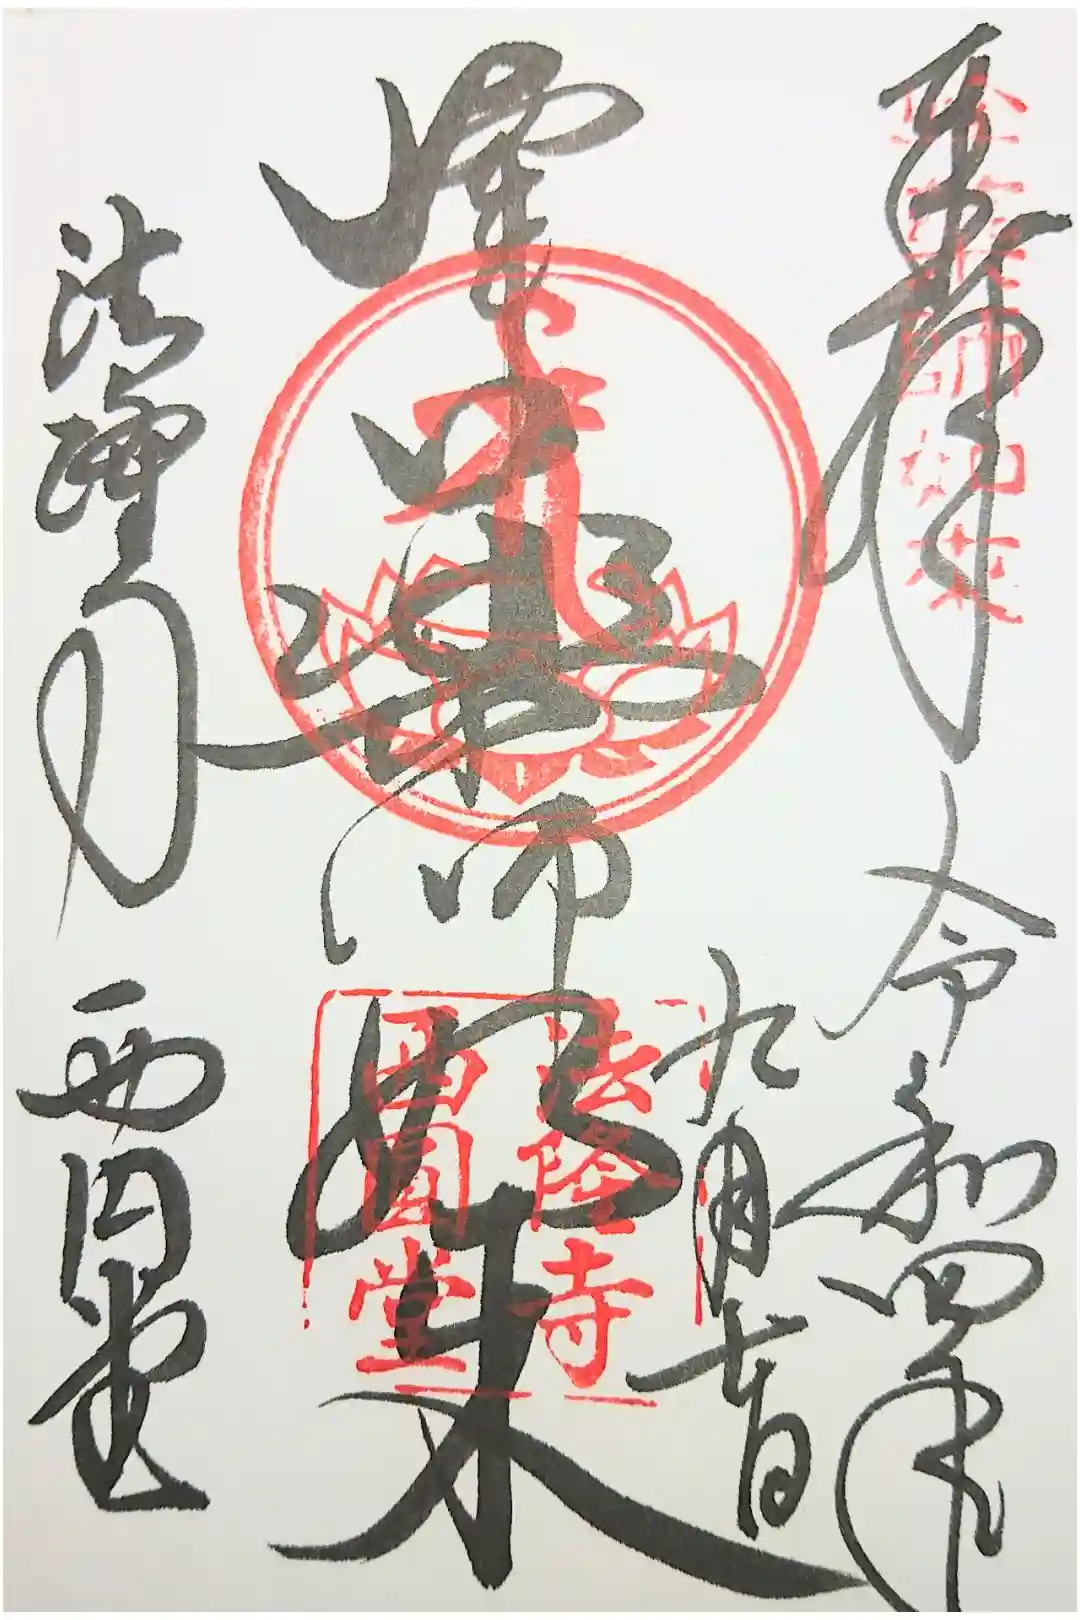 奉拝
令和四年
九月 日
峯薬師如来
法隆寺
西円堂
法隆寺
西圓堂